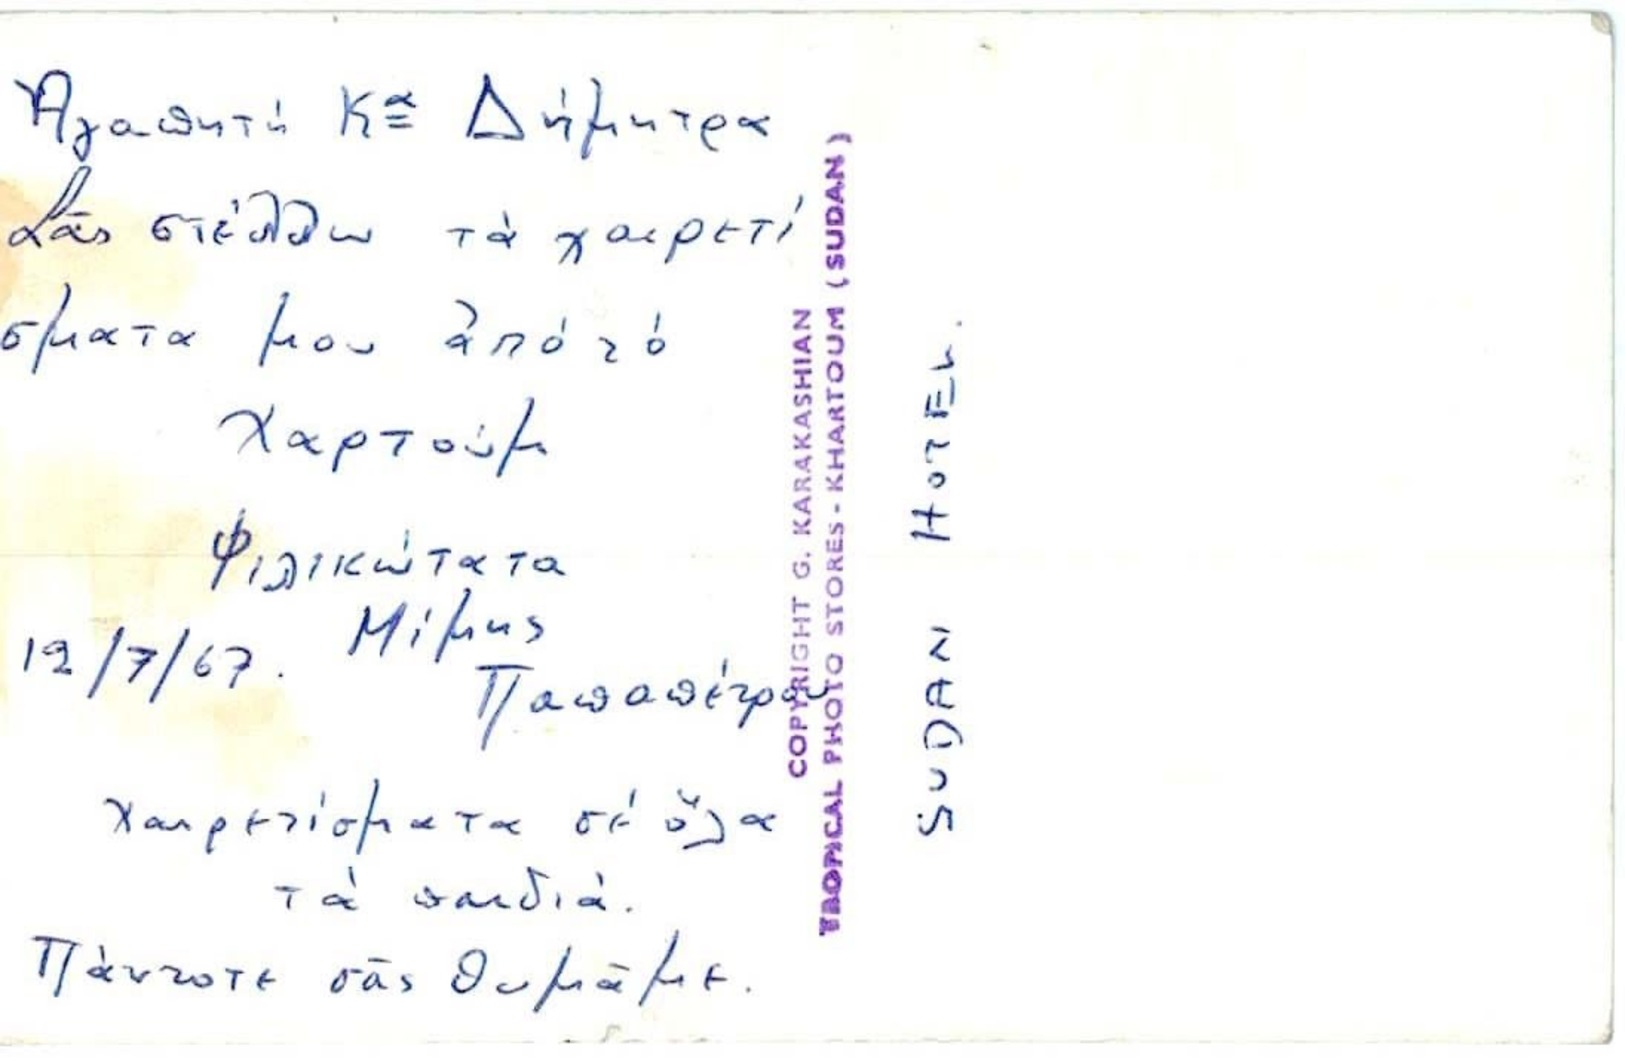 Ἀγαπητή Κα Δήμητρα
Σᾶς στέλλω τά χαιρετί
σματα μου ἀπό τό
Χαρτούμ
Φιλικώτατα
Μίμης
12/7/67.
Παπαπέτρου
Χαιρετίσματα σέ ὅλα
τά παιδιά.
Πάντοτε σᾶς θυμᾶμε.
COPYRIGHT G. KARAKASHIAN
TROPICAL PHOTO STORES - KHARTOUM (SUDAN)
SUDAN HOTEL.